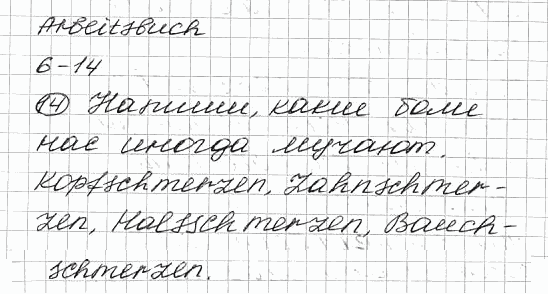 Arbeitsbuch
6-14
14 Напиши, какие боли
нас иногда мучают.
Kopfschmerzen, Zahnschmer-
zen, Halsschmerzen, Bauch-
schmerzen.